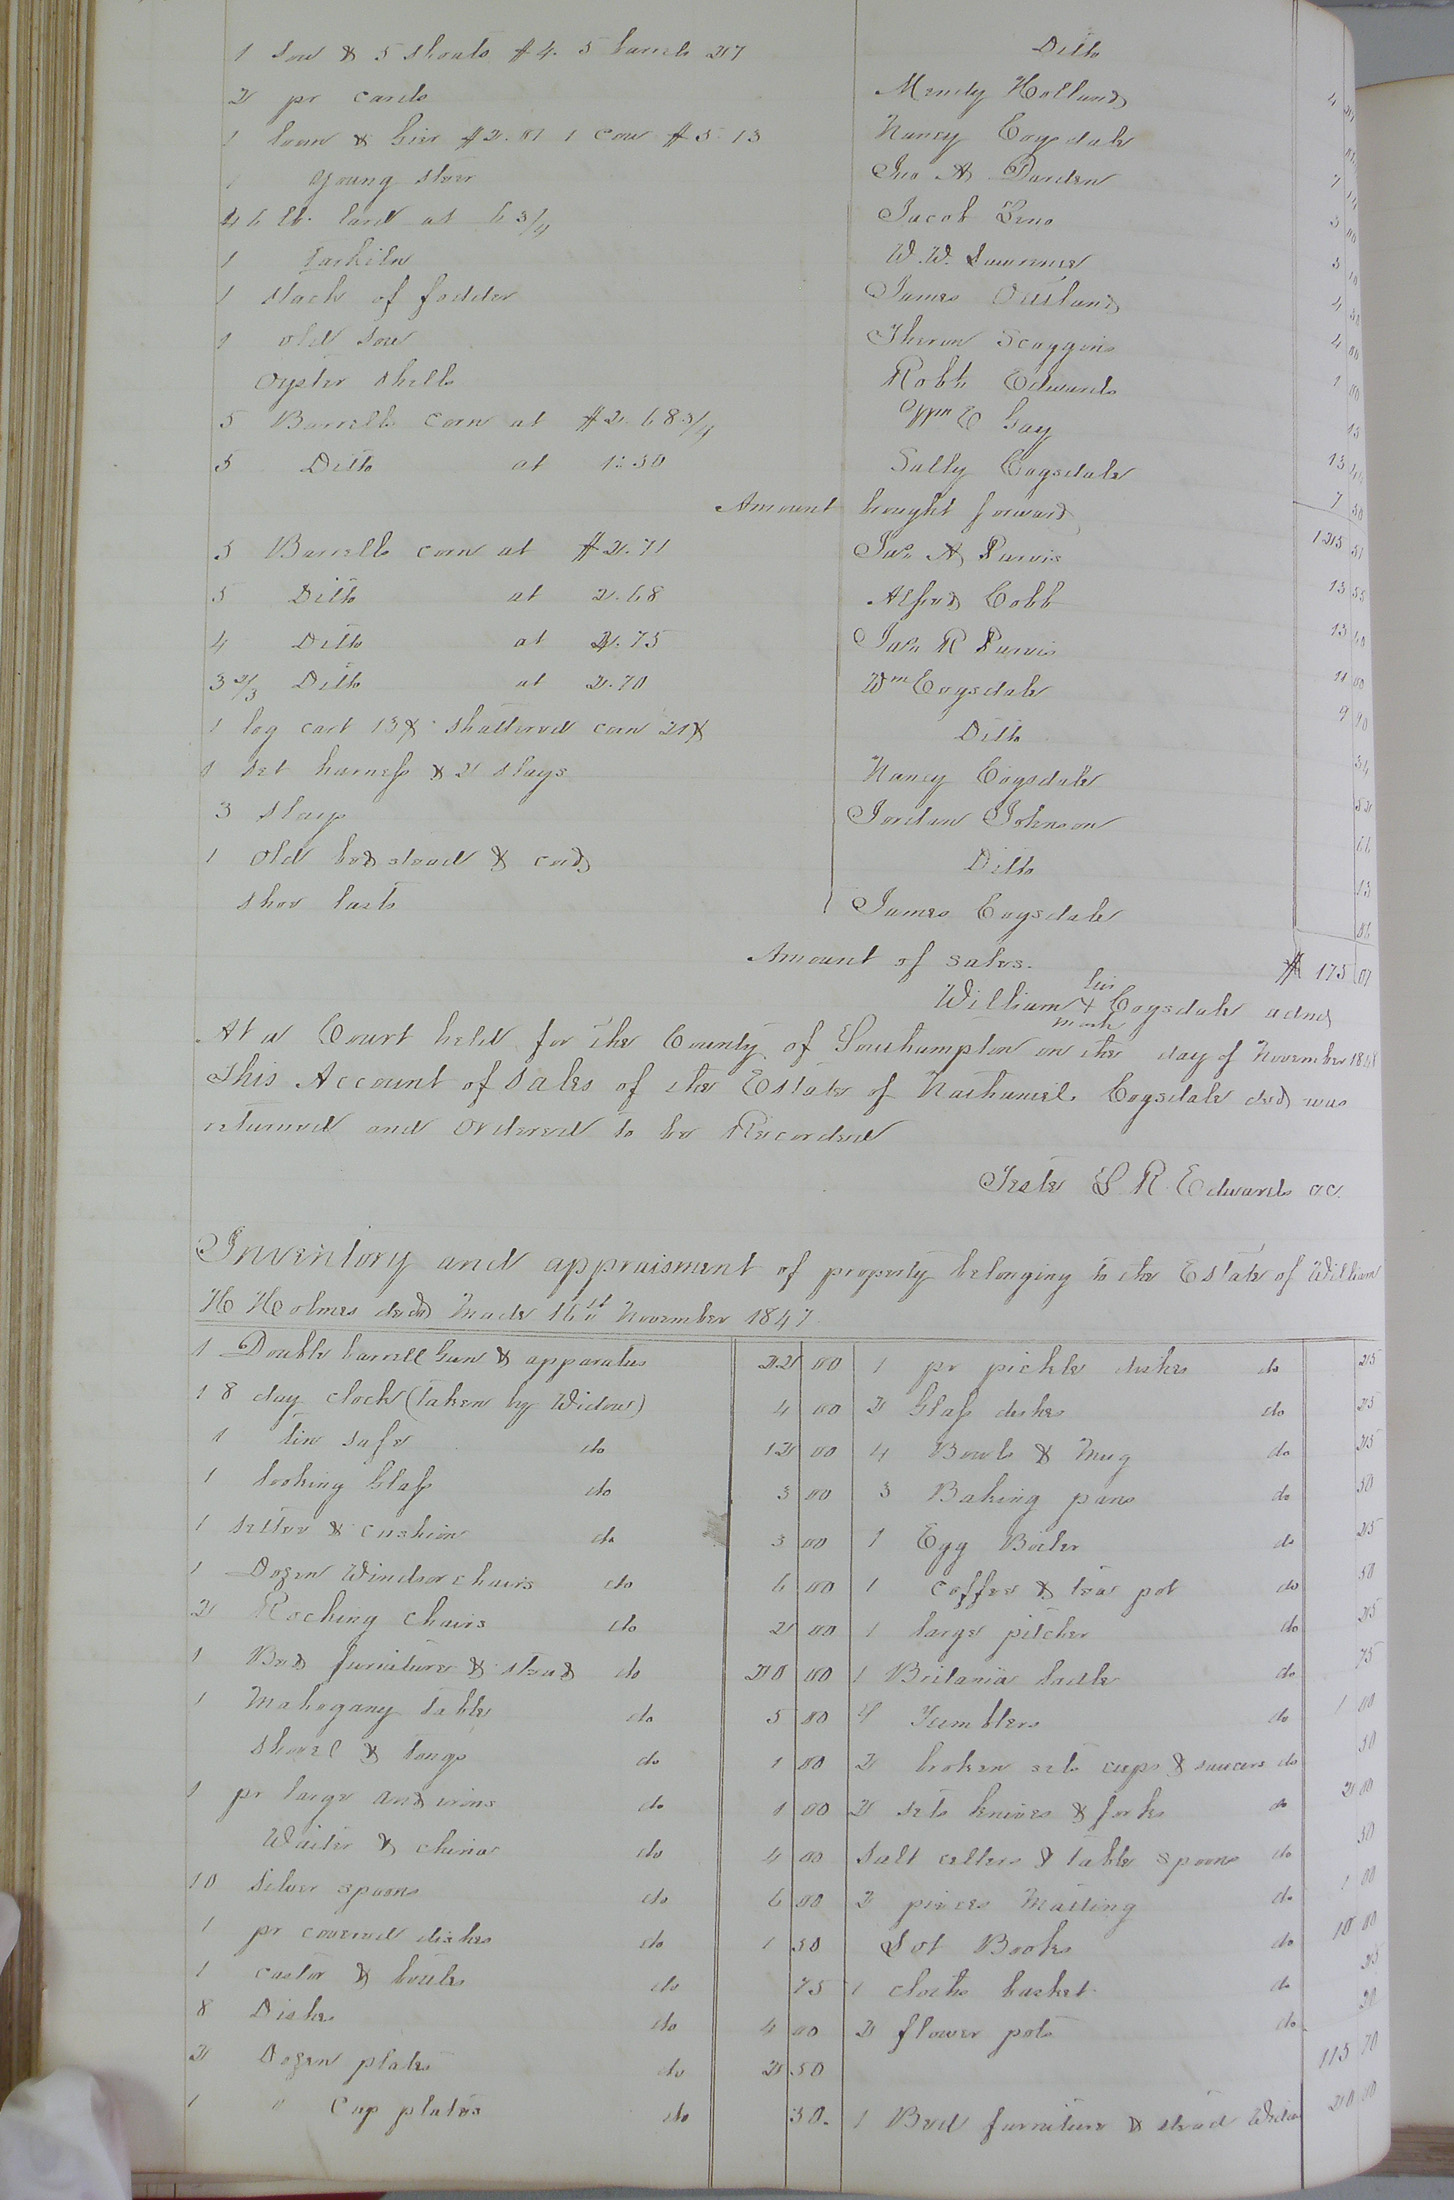 1 Sow & 5 Shoats $4. 5 barrels 27 Ditto 4 27
2 pr cards Mendy Holland
1 loom & Gier $2.01 1 cow $5.13 Nancy Cogsdale 7 14
1 Young steer Jno A Darden 3 00
46 lb. lard at 6 3/4 Jacob 3 10
1 W. W. Lawrence 4
1 stack of fodder James Outland 4 00
1 old sow Theron Scoggins 1 00
Oyster Shells Robb Edwards 13
5 Barrells corn at $2.68 3/4 Wm E Gay 13 44
5 Ditto at 1.50 Sally Cogsdale 7 50
Amount brought forward 125 51
5 Barrells corn at $2.71 Jas A Purvis 13 55
5 Ditto at 2.68 Alfred Cobb 13 40
4 Ditto at 2.75 Jas R Purvis 11 00
3 2/3 Ditto at 2.70 Wm Cogsdale 9 90
1 log cart 13¢ shattered corn 21¢ Ditto 34
1 set harness & 2 slays Nancy Cogsdale 52
3 slays Jordan Johnson
1 Old bedstead & cord Ditto 13
Shoe lasts James Cogsdale
Amount of sales. $ 175 07
his
William + Cogsdale admr
mark
At a Court held for the County of Southampton on the day of November 1848
This Account of Sales of the Estate of Nathaniel Cogsdale decd was
returned and Ordered to be Recorded
Teste L R Edwards CC.
Inventory and appraisment of property belonging to the Estate of William
H Holmes decd Made 16th November 1847
1 Double barrell Gun & apparatus 22 00 1 pr pickle dishes do 25
1 8 day clock (taken by Widow) 4 00 2 Glass dishes do 25
1 tin safe do 12 00 4 Bowls & Mug do 25
1 looking Glass do 3 00 3 Baking pans do 50
1 settee & cushion do 3 00 1 Egg Boiler do 25
1 Dozen Windsor chairs do 6 00 1 coffee & tea pot do 50
2 Rocking Chairs do 2 00 1 large pitcher do 25
1 Bed furniture & stead do 20 00 1 Britania ladle do 75
1 Mahogany table do 5 00 9 Tumblers do 1 00
Shovel & tongs do 1 00 2 broken sets cups & saucers do 50
1 pr large andirons do 1 00 2 sets knives & forks do 2 00
Waiter & china do 4 00 Salt cellers & table spoons do 50
10 Silver spoons do 6 00 2 pieces Matting do 1 00
1 pr covered dishes do 1 50 Lot Books do 10 00
1 castor & bottles do 75 1 cloths basket do 25
8 Dishes do 4 00 2 flower pots do 20
2 Dozen plates do 2 50 115 70
1 " Cup plates do 30. 1 Bed furniture & stead Widow 20 00